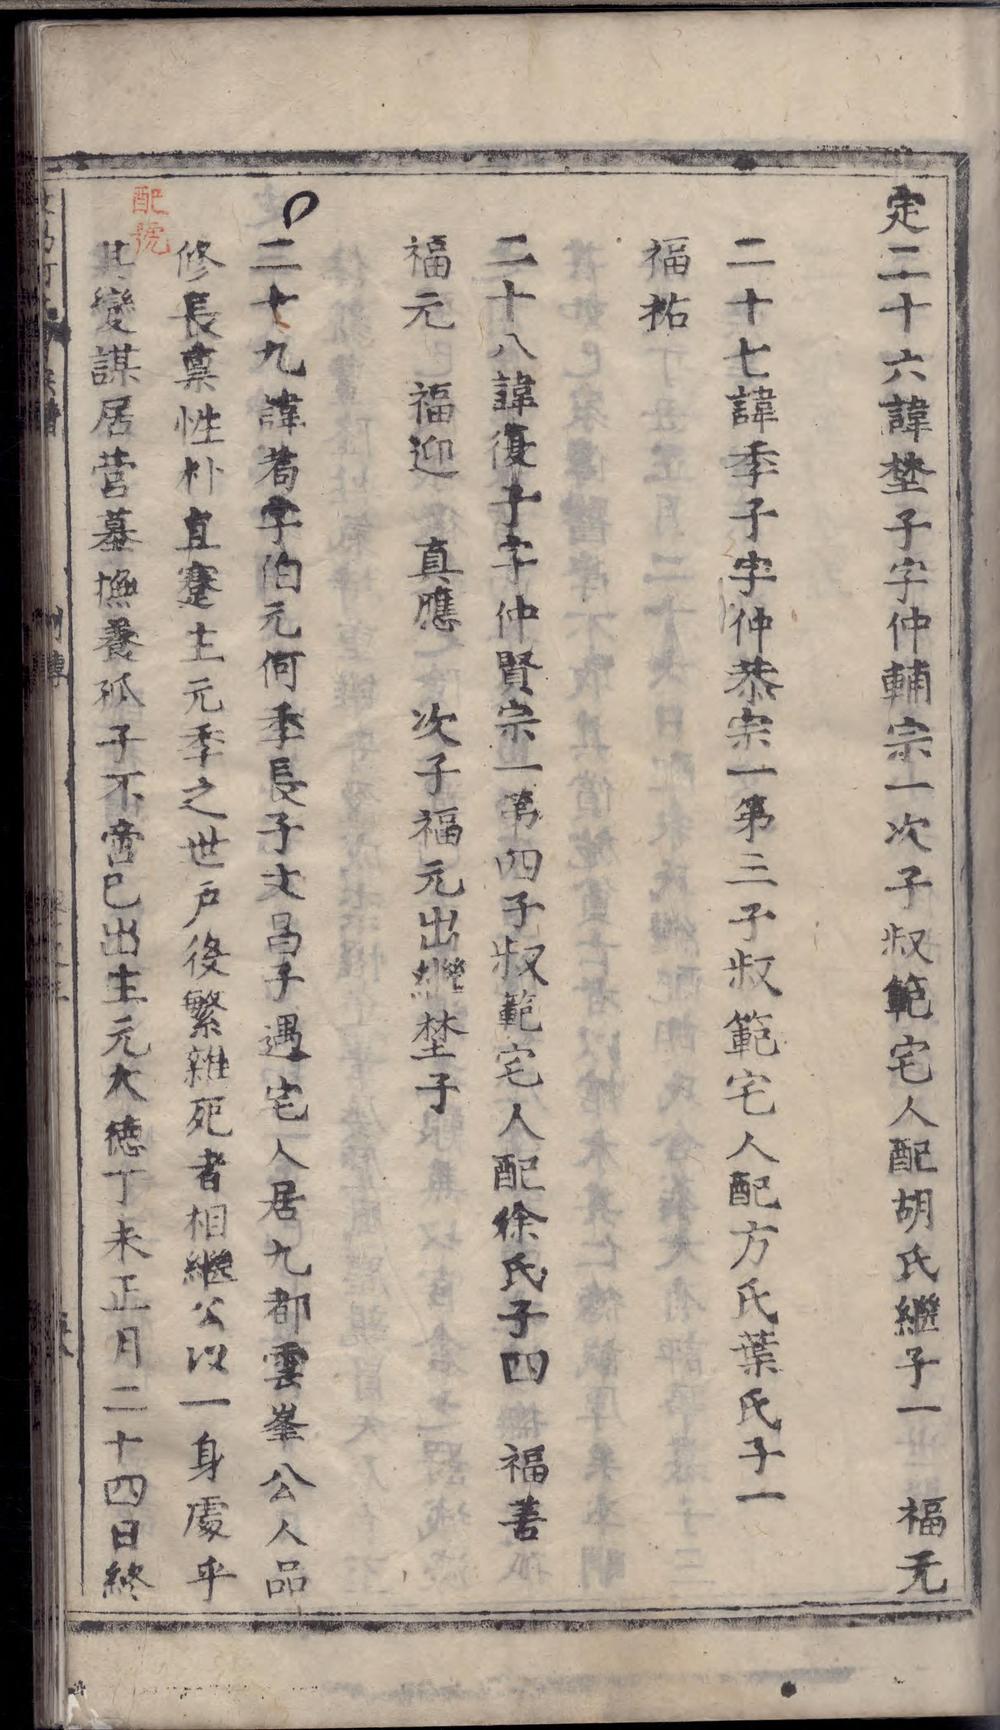 定二十六諱埜子字仲輔宗一次子叔範宅人配胡氏繼子一　福元
二十七諱季子字仲恭宗一第三子叔範宅人配方氏葉氏子一
福祐
二十八諱復子字仲賢宗一第四子叔範宅人配徐氏子四　福善
福元　福迎　真應　次子福元出繼埜子
二十九諱耉字伯元何季長子文昌子遇宅人居九都雲峯公人品
修長禀性朴直蹇主元季之世戶役繁雜死者相繼公以一身處乎
其變謀居營墓撫養孤子不啻已出生元大德丁未正月二十四日終
配號